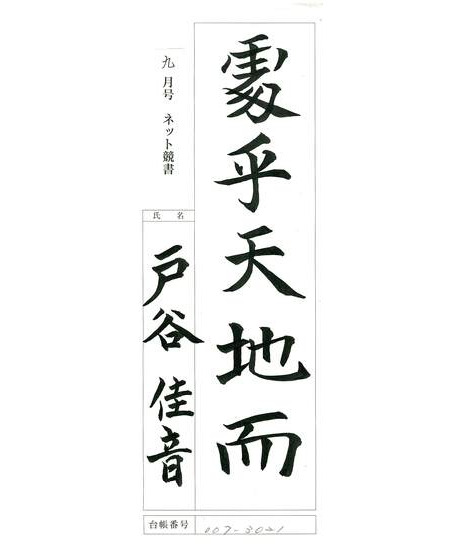 處乎天地而
九月号 ネット競書
氏名
戸谷 佳音
台帳番号 007-3021